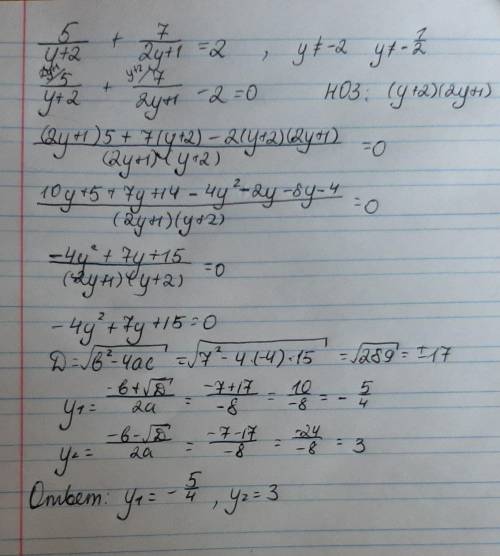 5/(y+2) + 7/(2y+1) = 2 , y ≠ -2 y ≠ -1/2
5/(y+2) + 7/(2y+1) - 2 = 0 НОЗ: (y+2)(2y+1)
((2y+1)5 + 7(y+2) - 2(y+2)(2y+1))/((2y+1)(y+2)) = 0
(10y+5+7y+14-4y²-2y-8y-4)/((2y+1)(y+2)) = 0
(-4y²+7y+15)/((2y+1)(y+2)) = 0
-4y²+7y+15=0
D=√(b²-4ac) = √(7²-4·(-4)·15) = √289 = ±17
y₁ = (-b+√D)/(2a) = (-7+17)/(-8) = 10/(-8) = -5/4
y₂ = (-b-√D)/(2a) = (-7-17)/(-8) = (-24)/(-8) = 3
Ответ: y₁ = -5/4 , y₂ = 3